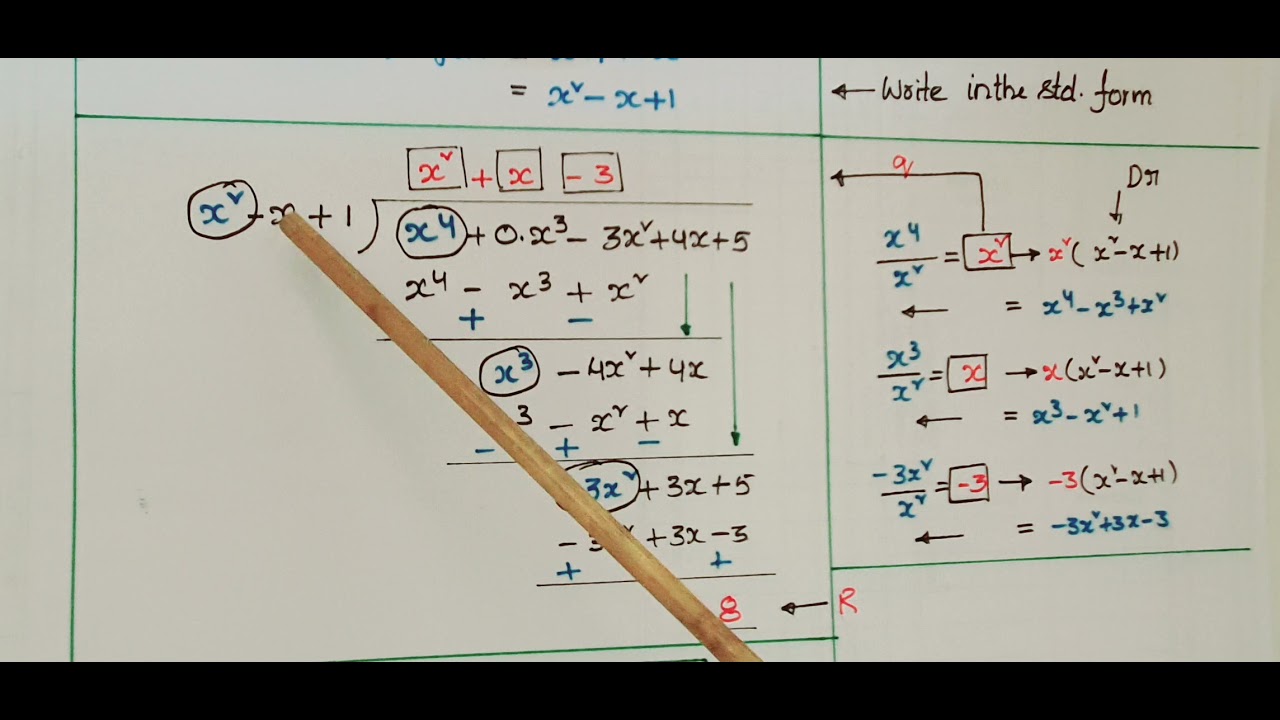 = x² - x + 1
← Write in the std. form
x² + x - 3
x² - x + 1 ) x⁴ + 0.x³ - 3x² + 4x + 5
x⁴ - x³ + x²
+ -
x³ - 4x² + 4x
3 - x² + x
- + -
3x² + 3x + 5
- 3 + 3x - 3
+ +
8 ← R
q
Dr
x⁴/x² = x² → x²(x² - x + 1)
← = x⁴ - x³ + x²
x³/x² = x → x(x² - x + 1)
← = x³ - x² + 1
-3x²/x² = -3 → -3(x² - x + 1)
← = -3x² + 3x - 3